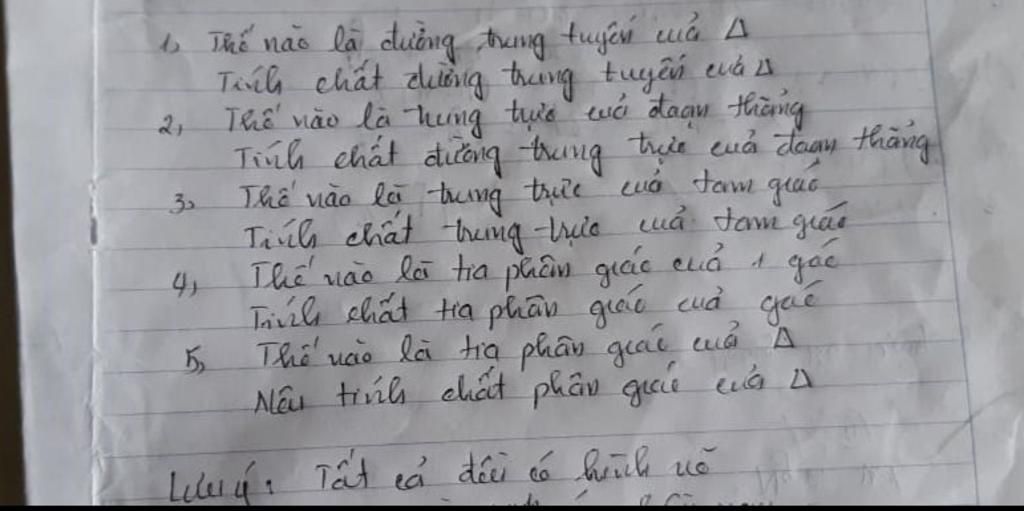 1, Thế nào là đường trung tuyến của Δ
Tính chất đường trung tuyến của Δ
2, Thế nào là trung trực của đoạn thẳng
Tính chất đường trung trực của đoạn thẳng
3, Thế nào là trung trực của tam giác
Tính chất trung trực của tam giác
4, Thế nào là tia phân giác của 1 góc
Tính chất tia phân giác của góc
5, Thế nào là tia phân giác của Δ
Nêu tính chất phân giác của Δ
Lưu ý: Tất cả đều có hình vẽ